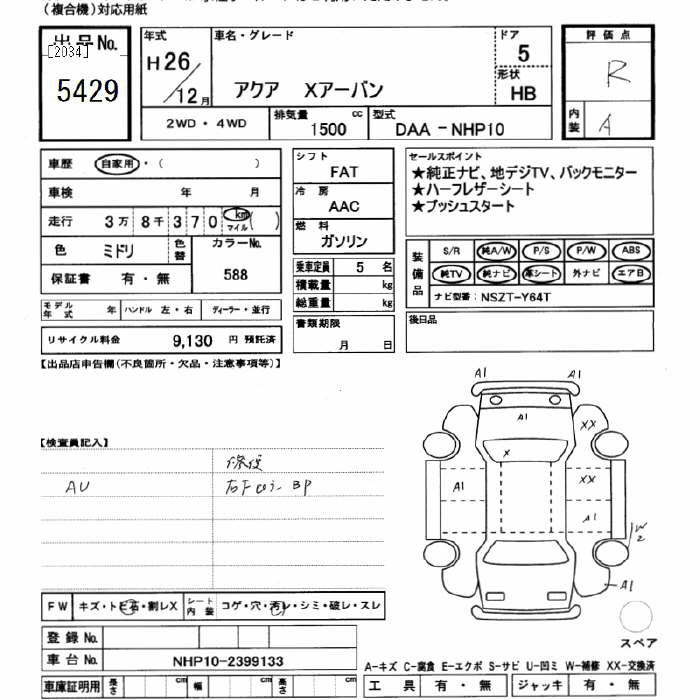 (複合機)対応用紙
出品No.
[2034]
5429
年式
H26/12月
車名・グレード
アクア Xアーバン
ドア
5
形状
HB
2WD・4WD
排気量
1500 cc
型式
DAA-NHP10
評価点
R
内装
A
車歴 自家用・( )
車検 年 月
走行 3万8千370 km マイル ( )
色 ミドリ 色替
カラーNo.
588
保証書 有・無
モデル年式 年 ハンドル 左・右 ディーラー・並行
リサイクル料金 9,130 円 預託済
シフト
FAT
冷房
AAC
燃料
ガソリン
乗車定員 5 名
積載量 kg
総重量 kg
書類期限
月 日
セールスポイント
★純正ナビ、地デジTV、バックモニター
★ハーフレザーシート
★プッシュスタート
装備品
S/R 純A/W P/S P/W ABS
純TV 純ナビ 革シート 外ナビ エアB
ナビ型番: NSZT-Y64T
後日品
【出品店申告欄(不良箇所・欠品・注意事項等)】
【検査員記入】
修復
AU
BP
A1
A1
A1
XX
X
A1
XX
A1
W2
A1
スペア
FW キズ・トビ石・割レX
シート内装 コゲ・穴・汚レ・シミ・破レ・スレ
登録No.
車台No. NHP10-2399133
車庫証明用 長さ cm 幅 cm 高さ cm
A-キズ C-腐食 E-エクボ S-サビ U-凹ミ W-補修 XX-交換済
工具 有・無 ジャッキ 有・無